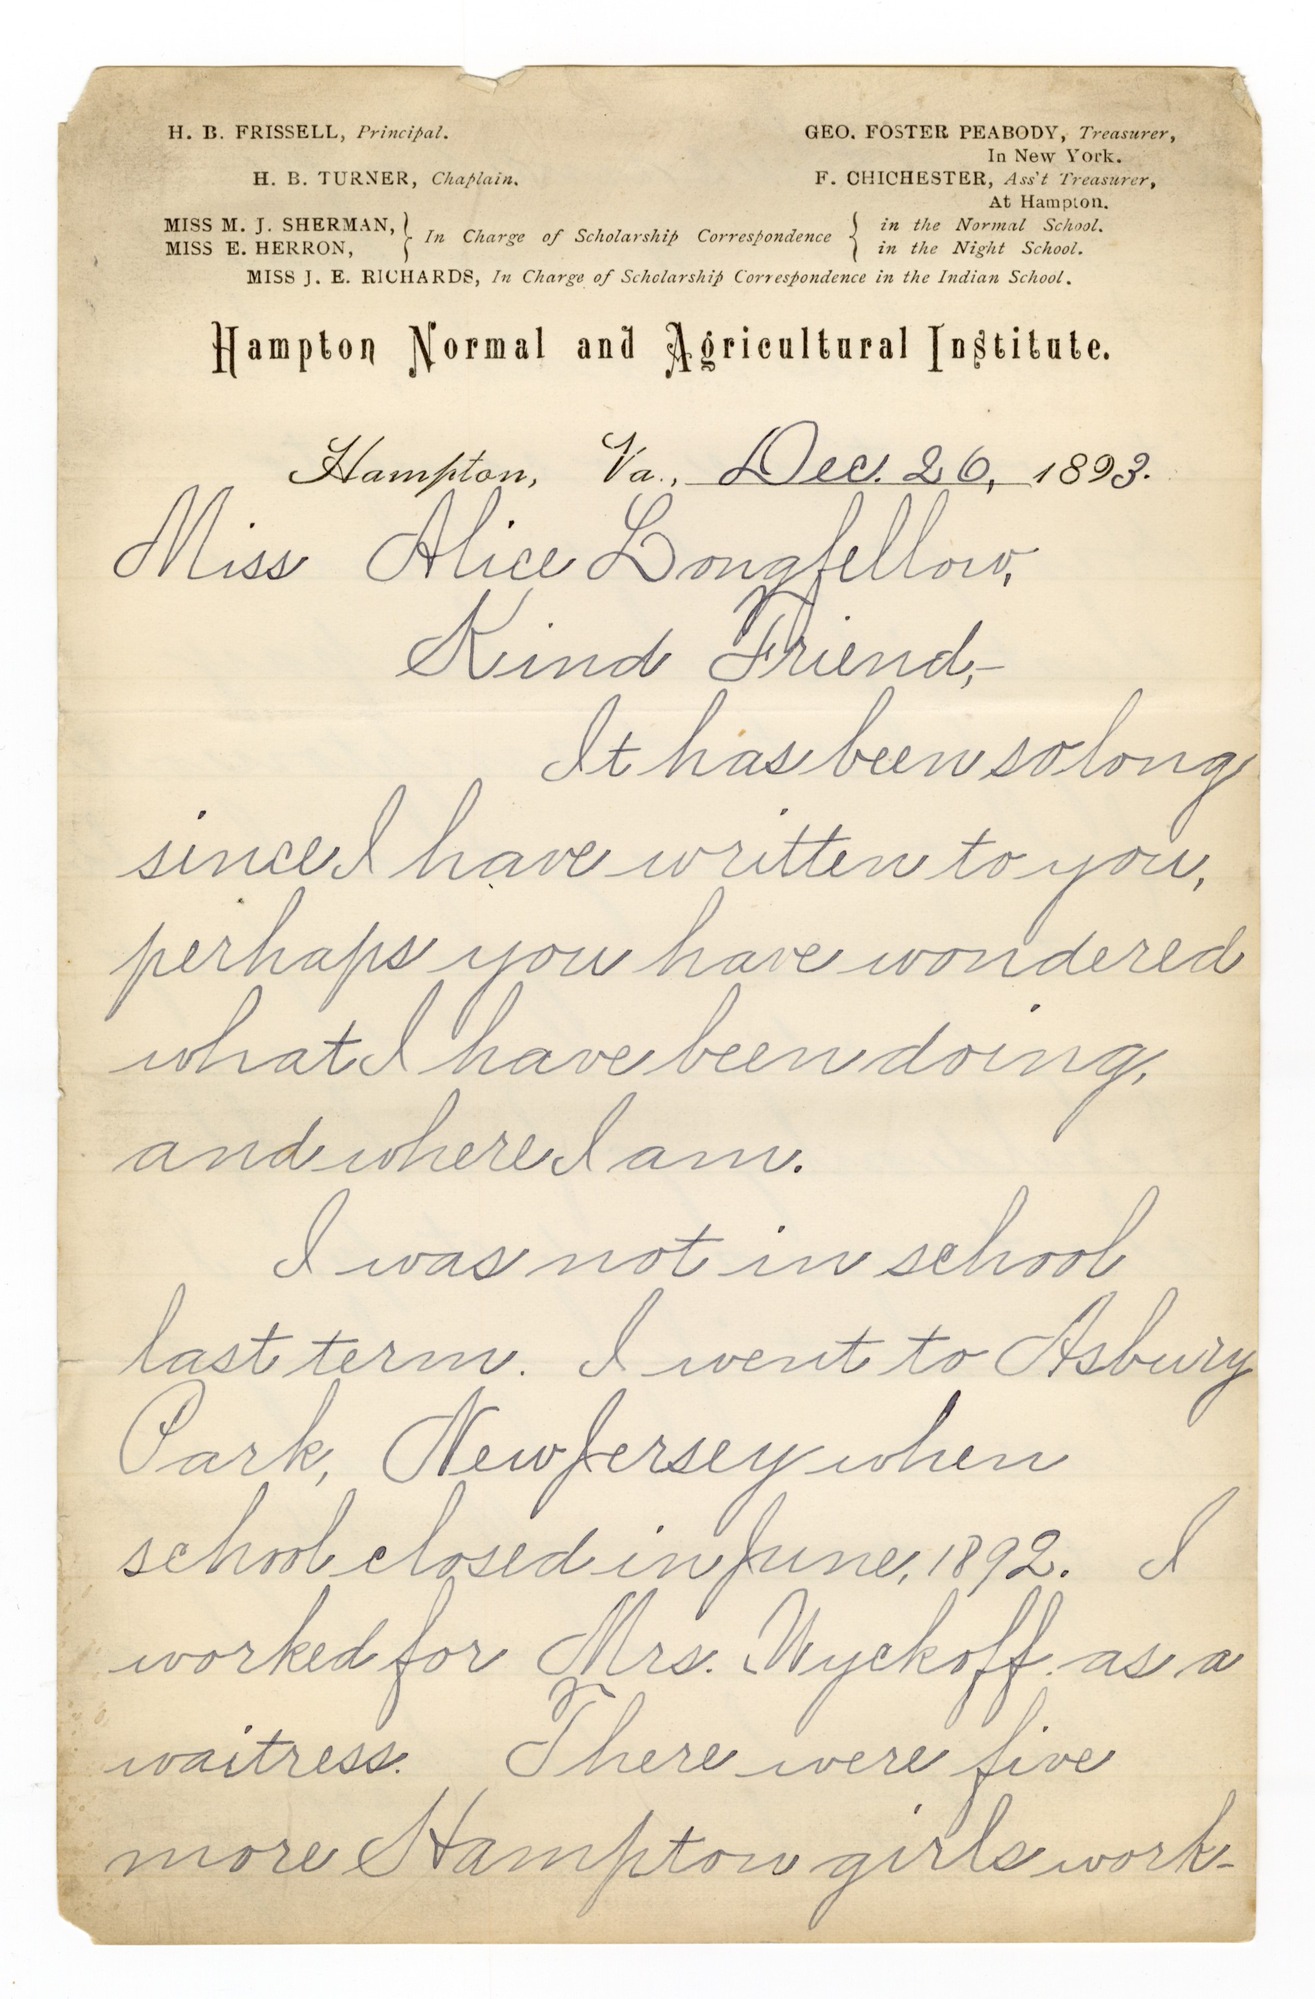 H. B. FRISSELL, Principal.
GEO. FOSTER PEABODY, Treasurer,
In New York.
H. B. TURNER, Chaplain.
F. CHICHESTER, Ass't Treasurer,
At Hampton.
MISS M. J. SHERMAN,
MISS E. HERRON,
} In Charge of Scholarship Correspondence {
in the Normal School.
in the Night School.
MISS J. E. RICHARDS, In Charge of Scholarship Correspondence in the Indian School.
Hampton Normal and Agricultural Institute.
Hampton, Va., Dec. 26, 1893.
Miss Alice Longfellow,
Kind Friend,-
It has been so long
since I have written to you,
perhaps you have wondered
what I have been doing,
and where I am.
I was not in school
last term. I went to Asbury
Park, New Jersey when
school closed in June, 1892. I
worked for Mrs. Wyckoff as a
waitress. There were five
more Hampton girls work-